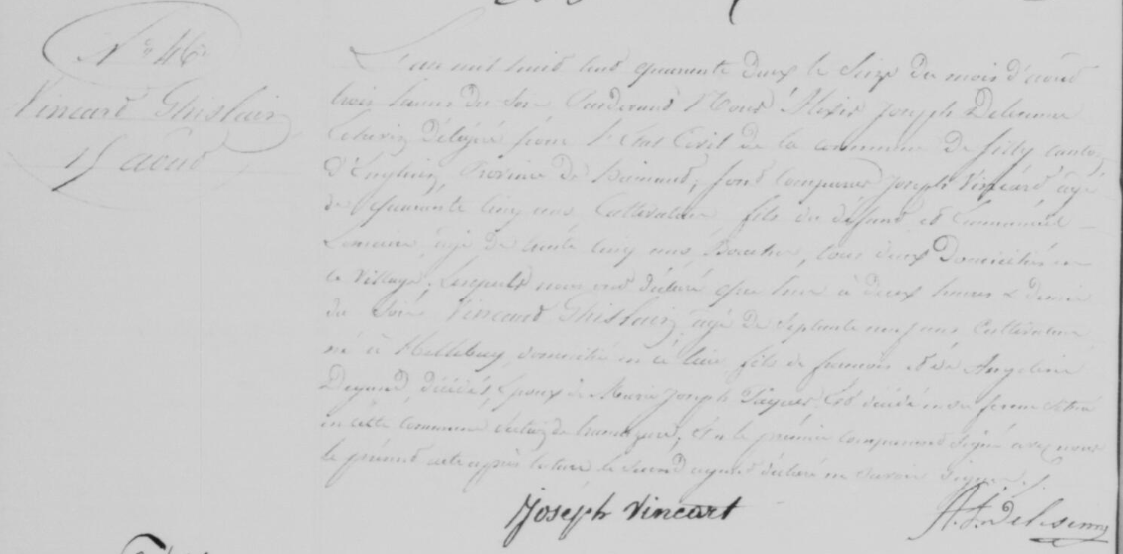 N° 46
Vincard Ghislain
15 août
L'an mil huit cent quarante deux le seize du mois d'août
trois heures du soir Pardevant Nous Alexis Joseph
Echevin délégué pour l'Etat Civil de la commune de Silly canton
d'Enghien, Province de Hainaut, sont comparus Joseph Vincard âgé
de quarante cinq ans Cultivateur fils du défunt et Emmanuel
âgé de trente cinq ans, tous deux domiciliés en
ce village, lesquels nous ont déclaré que hier à deux heures & demie
du soir, Vincard Ghislain, âgé de septante ans Cultivateur
né à Hellebecq, domicilié en ce lieu fils de francois et de Angeline
décédés, Epoux de Marie Joseph est décédé en sa ferme située
en cette commune section de et a le prémier comparant signé avec nous
le présent acte après lecture le second ayant déclaré ne savoir signer.
Joseph Vincart
A. J.